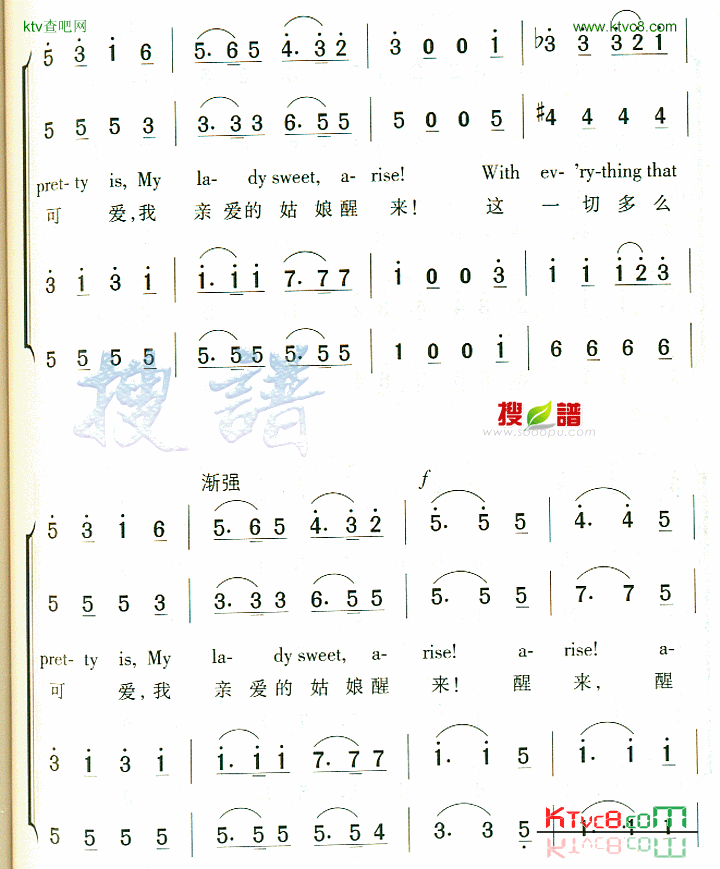 ktv查吧网 www.ktvc8.com
5 3 i 6 | 5. 6 5 4. 3 2 | 3 0 0 i | ♭3 3 3 2 1
5 5 5 3 | 3. 3 3 6. 5 5 | 5 0 0 5 | #4 4 4 4
pret- ty is, My la- dy sweet, a- rise! With ev- 'ry-thing that
可 爱,我 亲 爱的 姑 娘醒 来! 这 一 切多么
3 i 3 i | i. i i 7. 7 7 | i 0 0 3 | i i i 2 3
5 5 5 5 | 5. 5 5 5. 5 5 | 1 0 0 i | 6 6 6 6
搜譜
搜譜
www.sooopu.com
渐强 f
5 3 i 6 | 5. 6 5 4. 3 2 | 5. 5 5 | 4. 4 5
5 5 5 3 | 3. 3 3 6. 5 5 | 5. 5 5 | 7. 7 5
pret- ty is, My la- dy sweet, a- rise! a- rise! a-
可 爱,我 亲 爱的 姑 娘醒 来! 醒 来, 醒
3 i 3 i | i. i i 7. 7 7 | i. i 5 | i. i i
5 5 5 5 | 5. 5 5 5. 5 4 | 3. 3 5 | 1. 1 1
KTvc8.com